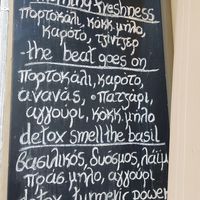 morning freshness
πορτοκάλι, κοκκ.μήλο,
καρότο, τζίντζερ
-the beat goes on
πορτοκάλι, καρότο,
ανανάς, παντζάρι,
αγγούρι, κόκκ.μήλο
detox smell the basil
βασιλικός, δυόσμος, λάιμ
πρασ.μήλο, αγγούρι
detox turmeric power